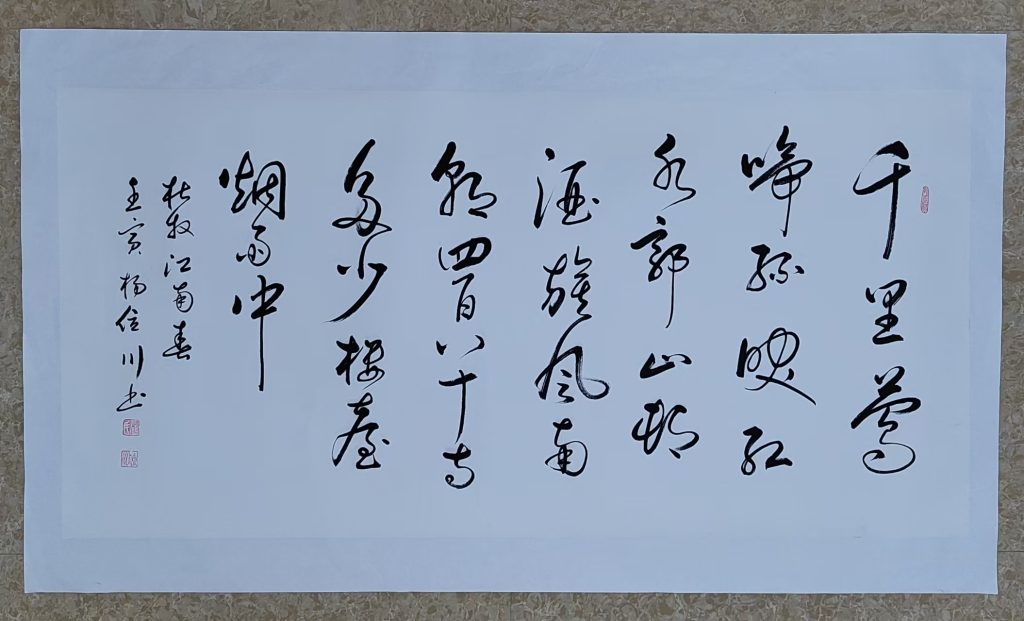 千里莺
啼绿映红
水郭山邨
酒旗风南
朝四百八十寺
多少楼臺
烟雨中
杜牧江南春
壬寅杨信川书